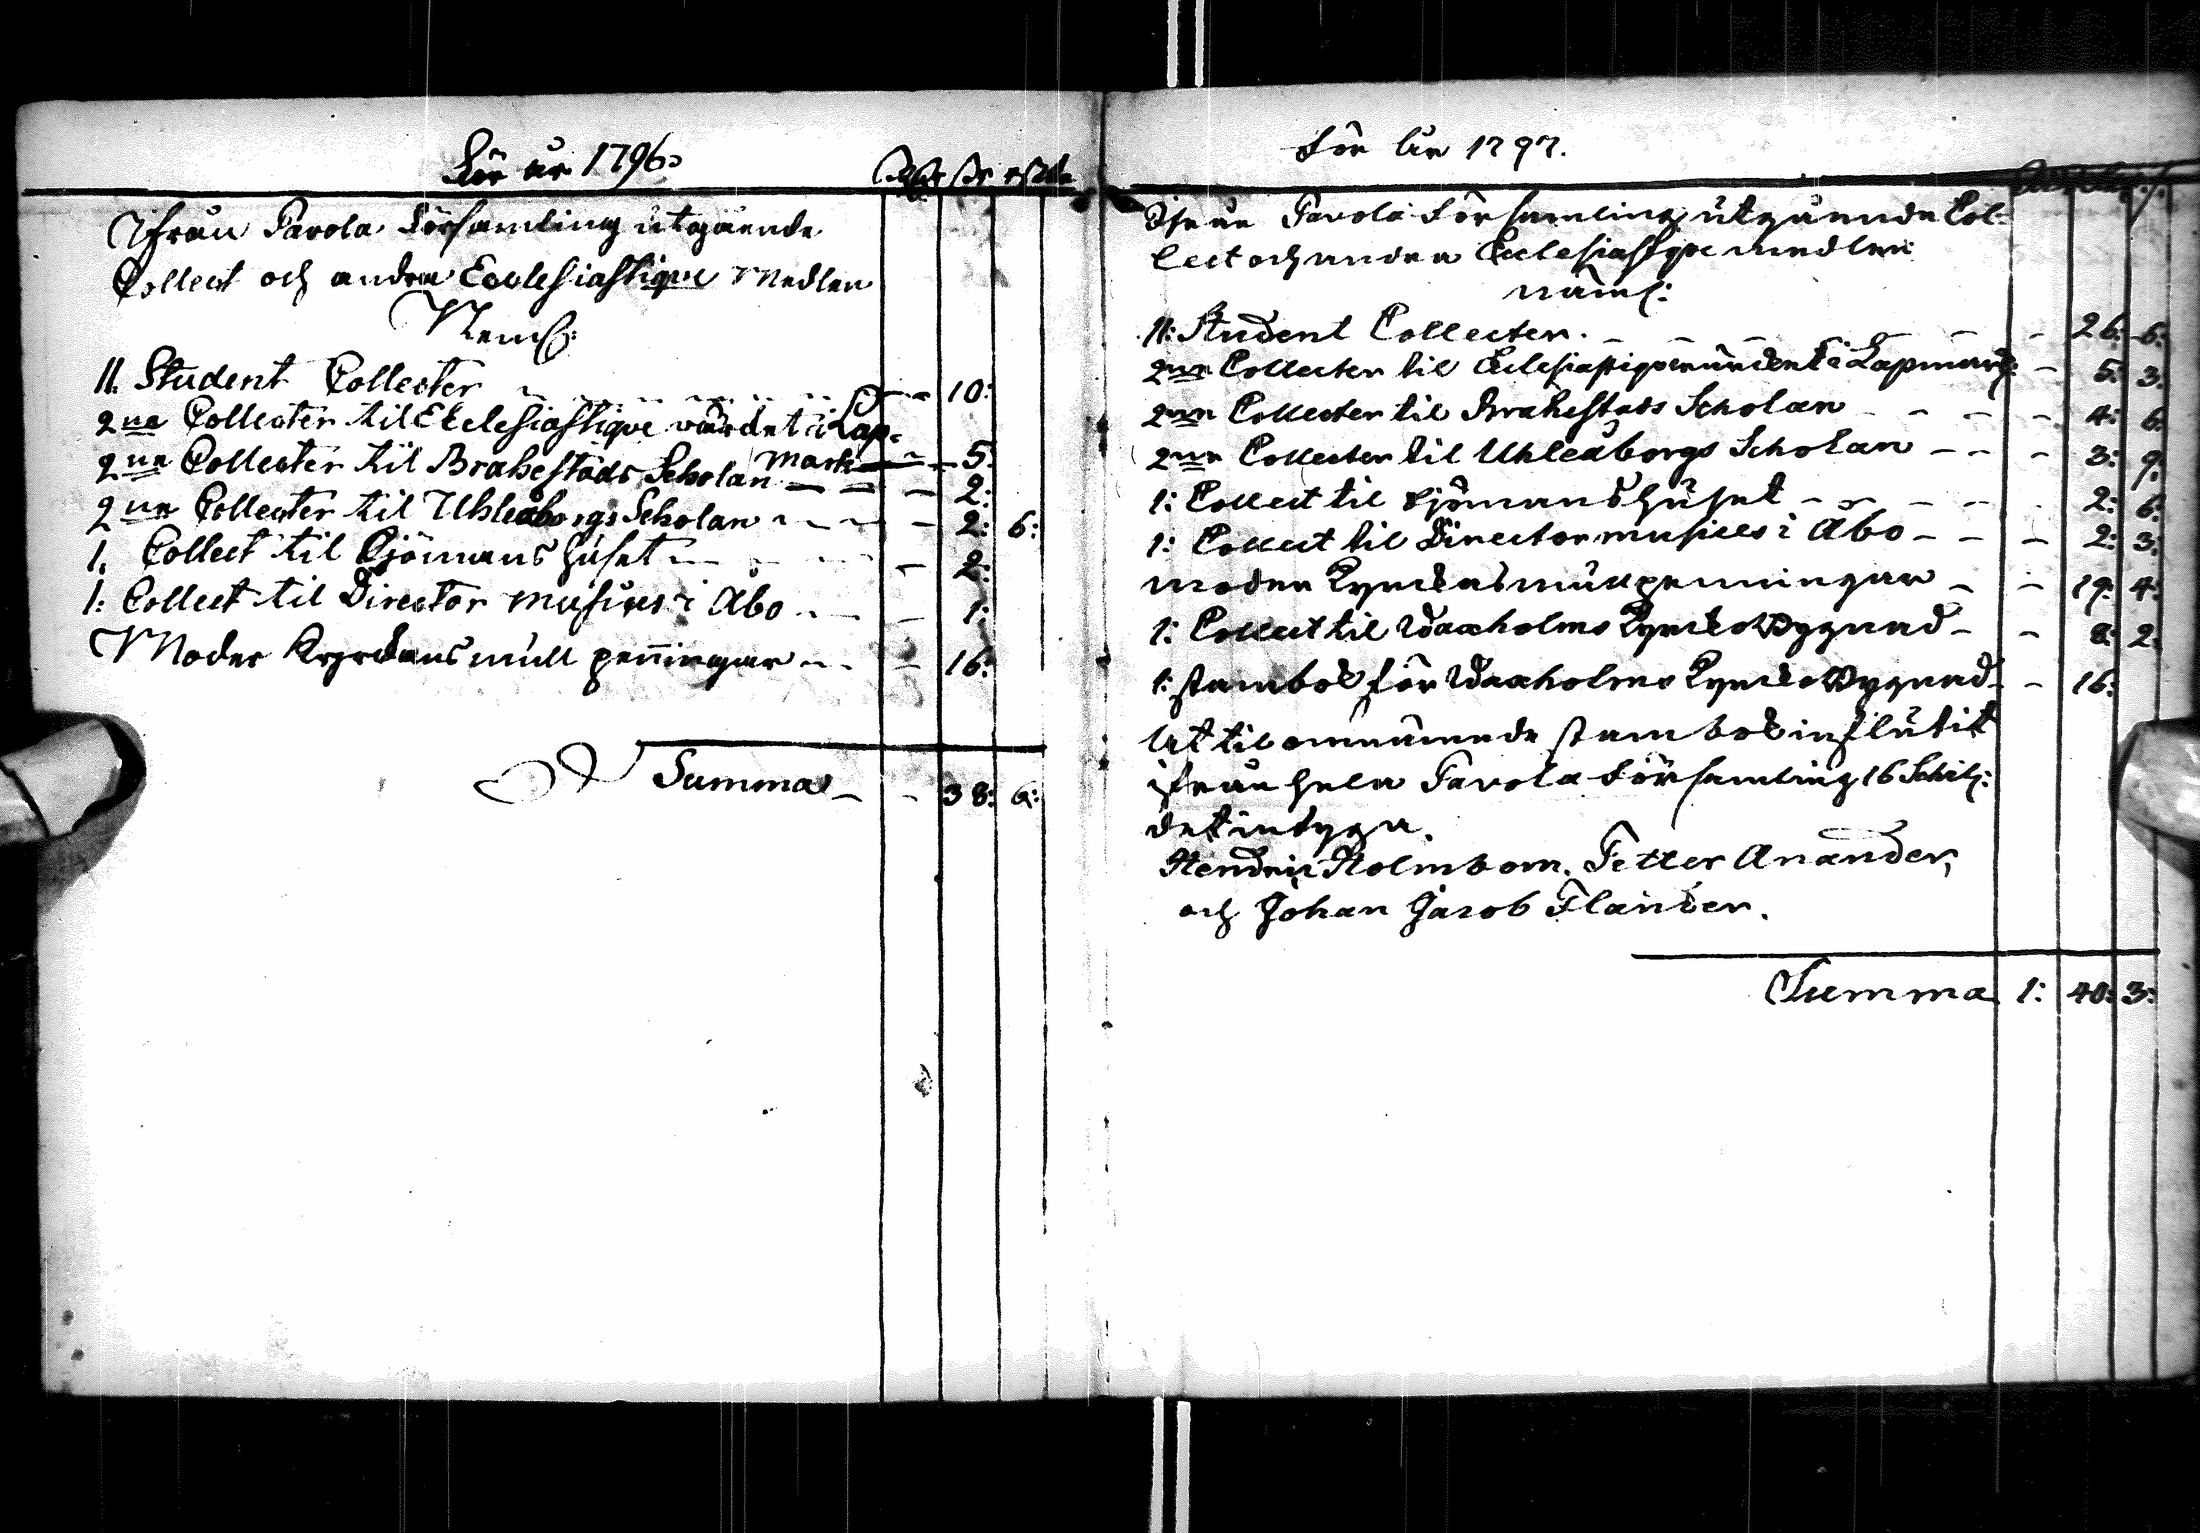 För år 1796.
Rdr ßr rst
Ifrån Pavola Församling utgående
Collect och andra Ecclesiastique Medlen
Neml:
11. Student Collecter - - - 10:
2ne Collecter til Ecclesiastique värdet i Lap-
mark - - 5
2ne Collecter til Brahestads Scholan - - - 2:
2ne Collecter til Uhleaborgs Scholan - - - 2: 6:
1. Collect til Sjömans huset - - - 2:
1: Collect til Director musices i Åbo - - - 1:
Moder Kyrckans mull penningar - - - 16:
Summa - - 38: 6:
För år 1797.
Ifrån Pavola Församling utgående Col-
lect och andra Ecclesiastique medlen
näml:
11: Student Collecter. - - - 26: 6:
2ne Collecter til Eclesiastique värdet i Lapmark - 5: 3:
2ne Collecter til Brahestads Scholan - - - 4: 6:
2ne Collecter til Uhleåborgs Scholan - - - 3: 9:
1: Collect til Sjömans huset - - - 2: 6:
1: Collect til Director musices i Åbo - - - 2: 3:
moder Kyrckas mull penningar - - 19: 4:
1: Collect til Waxholms Kyrcko Byggnad - - 8: 2:
1: stambok för Waxholms Kyrcko Bygnad - - 16:
At til omnämnde stambok influtit
ifrån hela Pavola Församling 16 Schil:
det intyga.
Hendric Holmbom. Petter Anander,
och Johan Jacob Flander.
Summa 1: 40: 3: